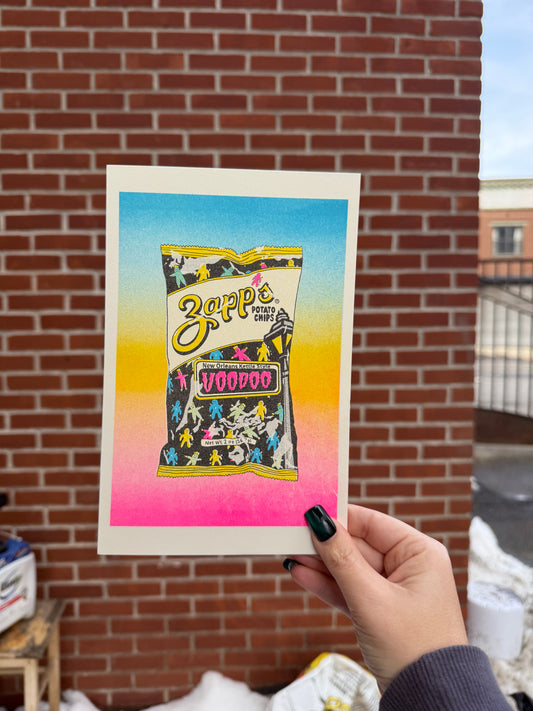 Zapp's®
POTATO
CHIPS
New Orleans Kettle Style
VOODOO
Net Wt 2 oz